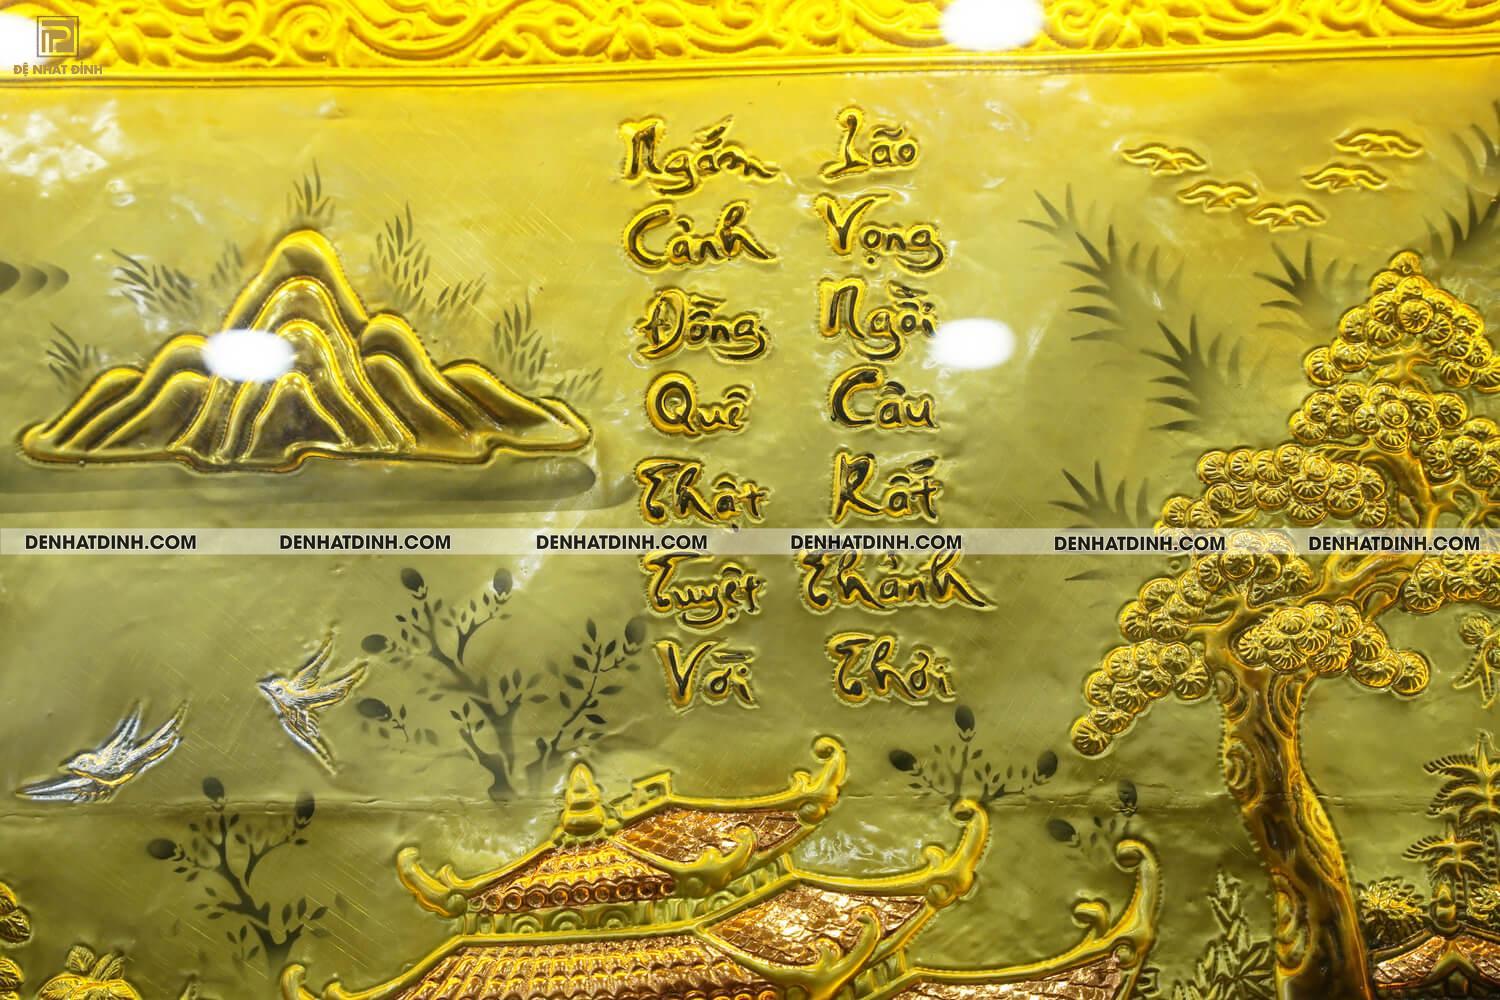 ĐỆ NHẤT ĐỈNH
Ngắm Lão
Cảnh Vọng
Đồng Ngồi
Quê Câu
Thật Rất
Tuyệt Thảnh
Vời Thơi
DENHATDINH.COM DENHATDINH.COM DENHATDINH.COM DENHATDINH.COM DENHATDINH.COM DENHATDINH.COM